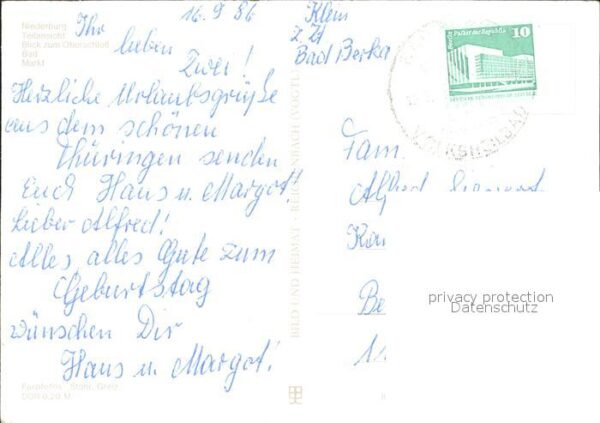 Niederburg
Teilansicht
Blick zum Oberschloß
Bad
Markt
16.9.86
Ihr
lieben
Zwei!
Herzliche Urlaubsgrüße
aus dem schönen
Thüringen senden
Euch Hans u. Margot!
Lieber Alfred!
Alles, alles Gute zum
Geburtstag
wünschen Dir
Hans u. Margot!
Farbfotos: Stahl, Greiz
DDR 0,20 M
BILD UND HEIMAT REICHENBACH (VOGTL)
Klein
z Zt
Bad Berka
Berlin, Palast der Republik
10
Fam.
Alfred
privacy protection
Datenschutz